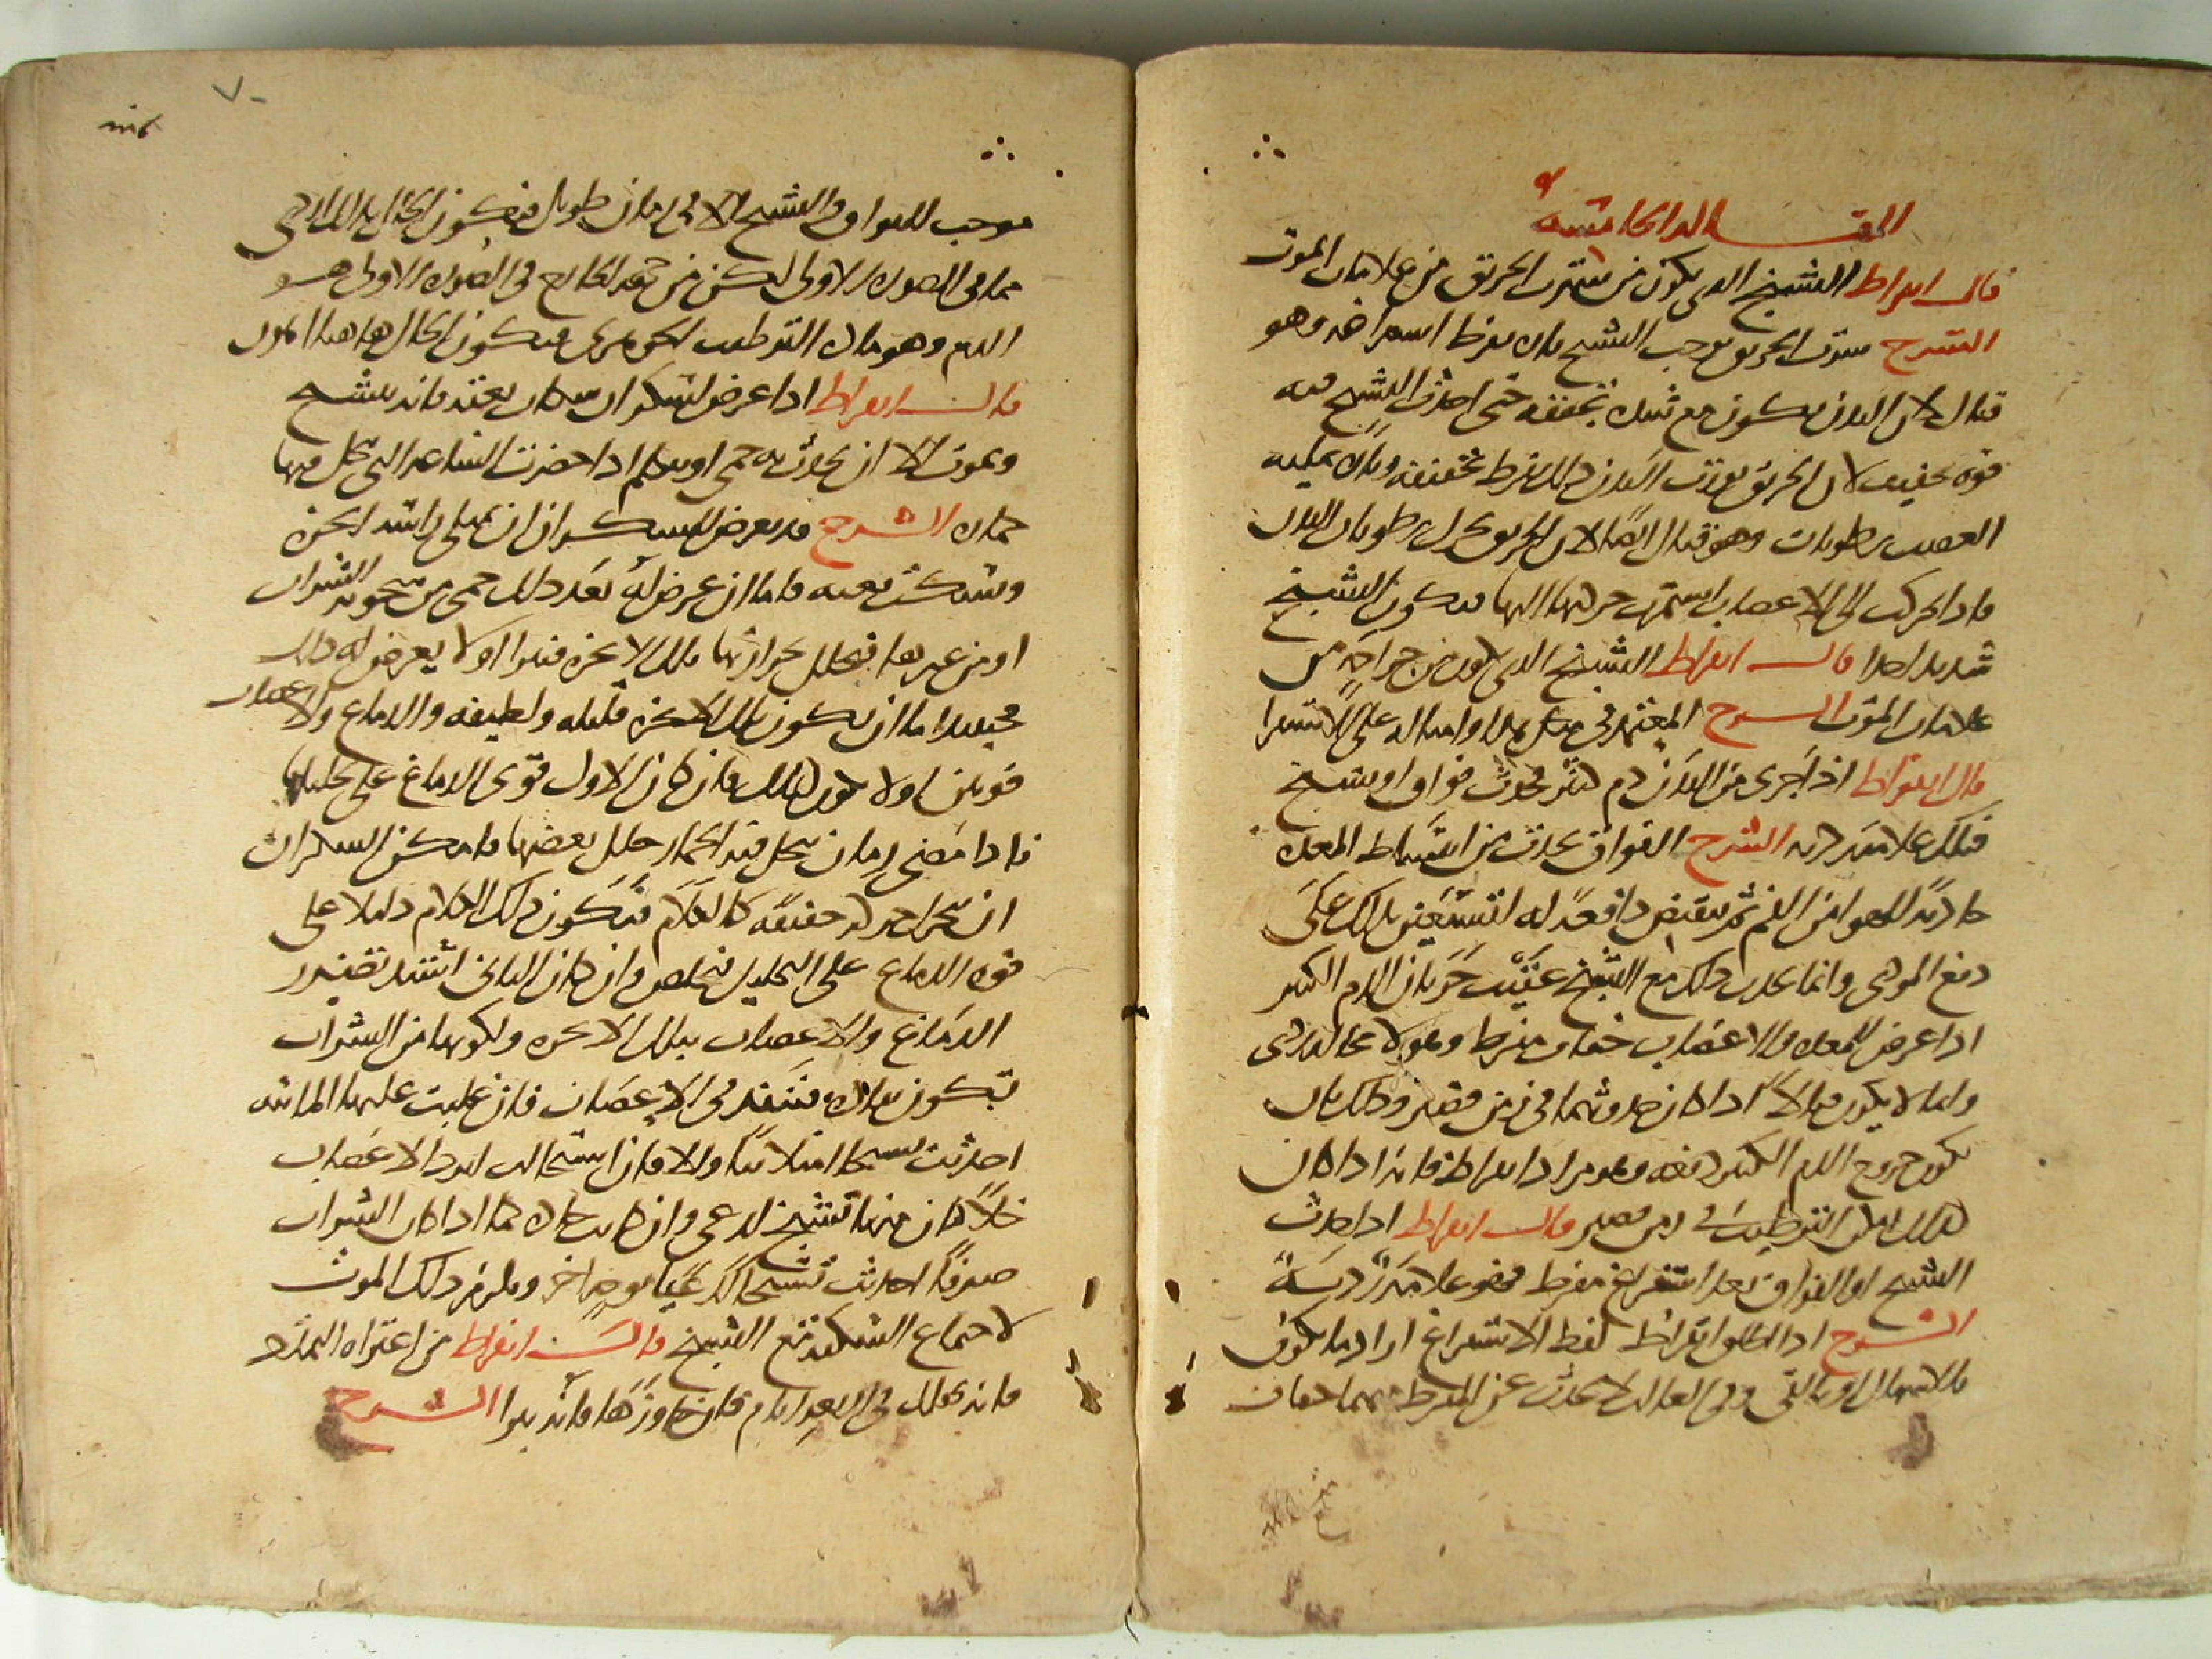 المقالة الخامسة
قال ابقراط التشنج الذي يكون من شرب الخربق من علامات الموت
الشرح شرب الخربق يوجب التشنج بان يفرط استفراغه وهو
قتال لان البدن يكون مع شدة تجففه حتى احدث التشنج فيه
قوة تجفيف لان الخربق في البدن ذلك يفرط تجفيفه وبان يملي
العصب رطوبات وهو قتال ايضا لان الخربق يحرك رطوبات البدن
فاذا تحركت الى الاعصاب استمرت حركتها اليها فيكون التشنج
شديدا جدا قال ابقراط التشنج الذي يكون من جراحة من
علامات الموت الشرح المعتمد في مثل هذا وامثاله على الاستقرا
قال ابقراط اذا جرى من البدن دم كثير فحدث فواق او تشنج
فتلك علامة ردية الشرح الفواق يحدث من انبساط المعدة
جاذبة للهوا من الفم ثم تنقبض دافعة له لتستعين بذلك على
دفع الموذي وانما يحدث ذلك مع التشنج عقيب جريان الدم الكثير
اذا عرض للمعدة والاعصاب جفاف مفرط وهو لا محالة ردي
وانما لا يكون قتالا اذا كان حدوثهما في زمن قصير وذلك بان
يكون خروج الدم الكثير دفعة وهو مراد ابقراط فانه اذا كان
كذلك امكن الترطيب في زمن قصير قال ابقراط اذا حدث
التشنج او الفواق بعد استفراغ مفرط فهو علامة ردية
الشرح اذا اطلق ابقراط لفظ الاستفراغ اراد ما يكون
بالاسهال او بالقي وفي الغالب لا يحدث عن المفرط منهما جفاف
موجب للفواق والتشنج الا في زمان طويل فيكون الحال هذا اردى
مما في الصورة الاولى لكن من جهة الخارج في الصورة الاولى هو
الدم وهو مادة الترطيب الجوهري فيكون الحال هاهنا اهون
قال ابقراط اذا عرض لسكران سكات بغتة فانه يتشنج
ويموت الا ان يحدث به حمى او يتكلم اذا حضرت الساعة التي يحل فيها
خماره الشرح قد يعرض للسكران ان يمتلي راسه ابخرة
ويسكت بغتة فاما ان عرض له بعد ذلك حمى من سخونة الشراب
او من غيرها فتحلل بحرارتها تلك الابخرة فيبرا او لا يعرض له ذلك
فحينيذ اما ان يكون تلك الابخرة قليلة ولطيفة والدماغ والاعصاب
قويين او لا يكون كذلك فان كان الاول قوى الدماغ على تحليلها
فاذا مضى زمان يحل فيه الخمار حلل بعضها فامكن السكران
ان يتحرك حركة حفيفة كالكلام فيكون ذلك الكلام دليلا على
قوة الدماغ على التحليل فيخلص وان كان الثاني اشتد تضرر
الدماغ والاعصاب بتلك الابخرة ولكونها من الشراب
تكون نفاذة فتنفذ في الاعصاب فان غلبت عليها المائية
احدثت تشنجا امتلائيا والا فان استحالت لبرد الاعصاب
خلا كان منها تشنج لذعي وان كانت حارة كما اذا كان الشراب
صرفا احدثت تشنجا لذعيا بوجه اخر ويلزم ذلك الموت
لاجتماع السكته مع التشنج قال ابقراط من اعتراه التمدد
فانه يهلك في اربعة ايام فان جاوزها فانه يبرا الشرح